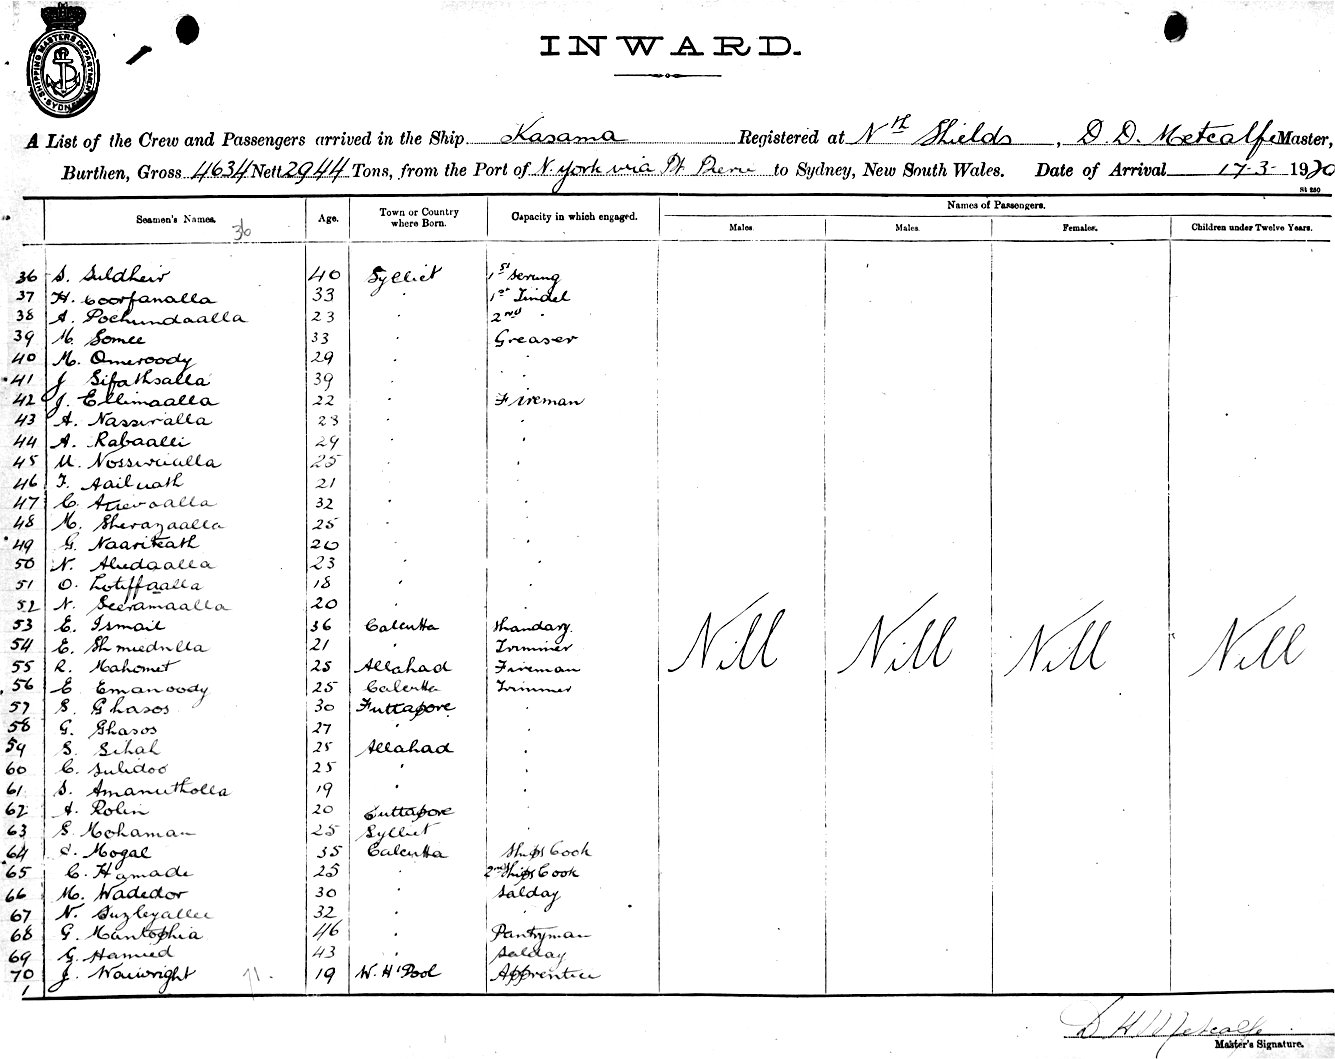 SHIPPING MASTERS DEPARTMENT SYDNEY
INWARD.
A List of the Crew and Passengers arrived in the Ship Kasama Registered at Nth Shields, D D. Metcalfe Master,
Burthen, Gross 4634 Nett 2944 Tons, from the Port of N. York via Pt Perie to Sydney, New South Wales. Date of Arrival 17-3-1920
St 250
Seamen's Names. Age. Town or Country where Born. Capacity in which engaged. Names of Passengers.
36 Males. Males. Females. Children under Twelve Years.
36 S. Suldheir 40 Sylliet 1st Serung
37 H. Coorfanalla 33 " 1st Tindel
38 A. Pochundaalla 23 " 2nd "
39 M. Somee 33 " Greaser
40 M. Omeroody 29 " "
41 J Sifathsalla 39 " "
42 J. Ellimaalla 22 " Fireman
43 A. Nassiralla 23 " "
44 A. Rabaalli 29 " "
45 U. 25 " "
46 F. Aailuath 21 " "
47 C. 32 " "
48 M. Sherazaalla 25 " "
49 G. Naariteath 20 " "
50 N. Aludaalla 23 " "
51 O. Lotiffaalla 18 " "
52 N. Seeramaalla 20 " "
53 E. Ismail 36 Calcutta Bhandary
54 E. Shmiedulla 21 " Trimmer
55 R. Mahomet 25 Allahad Fireman
56 E Emanoody 25 Calcutta Trimmer
57 S. Ghasos 30 Futtapore "
58 G. Ghasos 27 " "
59 S. Sihal 25 Allahad "
60 C. Sulidoo 25 " "
61 S. Amanutholla 19 " "
62 A. Robin 20 Futtapore "
63 S. Mohaman 25 Sylliet "
64 Mogal 35 Calcutta Ships Cook
65 C. Hamade 25 " 2nd Ships Cook
66 M. Wadedor 30 " Salday
67 N. Suzleyallee 32 " "
68 G. Mantophia 46 " Pantryman
69 G. Hamied 43 " Salday
70 J. Waiwright 71. 19 W. H'Pool Apprentice
1
Nill Nill Nill Nill
D H Metcalfe
Master's Signature.